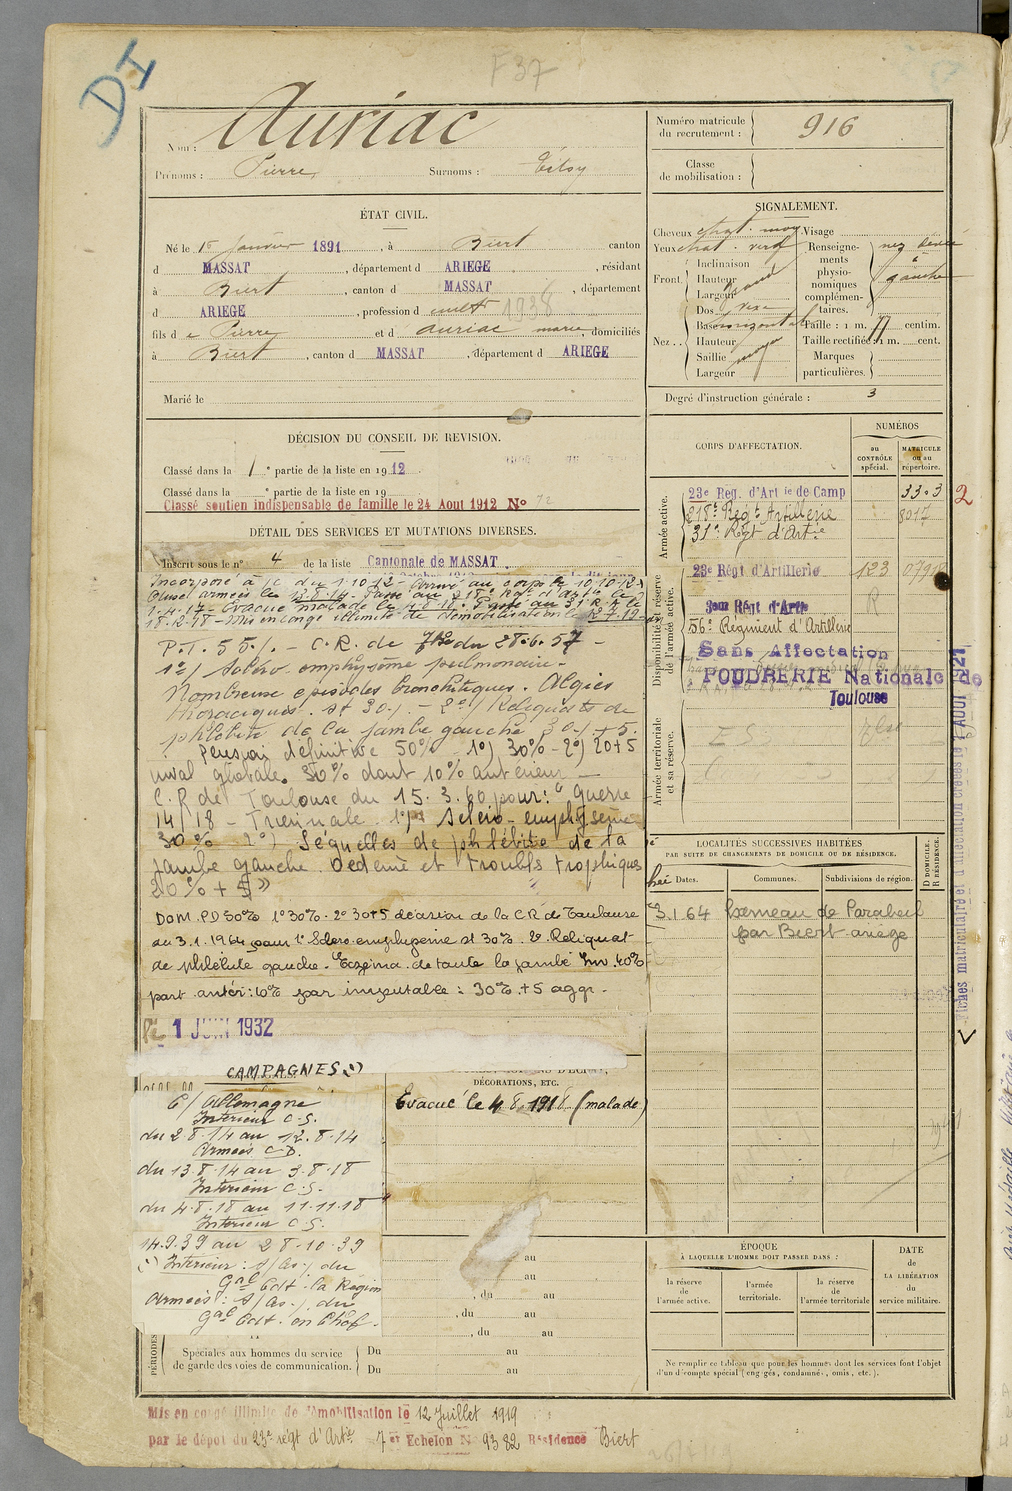 DI
F 37
Nom : Auriac
Prénoms : Pierre, Surnoms :
Numéro matricule du recrutement : 916
Classe de mobilisation :
ÉTAT CIVIL.
Né le janvier 1891, à Biert canton
d MASSAT, département d ARIEGE, résidant
à Biert, canton d MASSAT, département
d ARIEGE, profession d cult 1938
fils de Pierre et d auriac marie domiciliés
à Biert, canton d MASSAT, département d ARIEGE
Marié le
SIGNALEMENT.
Cheveux chat. moy Visage
Yeux chat. verd Renseigne-
ments
physio-
nomiques
complémen-
taires.
nez dévié
à
gauche
Front
Inclinaison
Hauteur
Largeur
Nez . .
Dos vexe
Base horizontale
Hauteur
Saillie moyen
Largeur
Taille : 1 m. 77 centim.
Taille rectifiée : 1 m. cent.
Marques
particulières.
Degré d'instruction générale : 3
DÉCISION DU CONSEIL DE REVISION.
Classé dans la 1e partie de la liste en 1912
Classé dans la e partie de la liste en 19
Classé soutien indispensable de famille le 24 Aout 1912 No 72
DÉTAIL DES SERVICES ET MUTATIONS DIVERSES.
Inscrit sous le n° 4 de la liste Cantonale de MASSAT.
Incorporé à /c du 1.10.12 - Arrivé au corps le 10.10.12
armées le 13.8.14 - Passé au 218e Rgt d'art le
1.4.17 - Evacué malade le 4.8.18. Passé au 31e R.A. le
18.12.18 - Mis en congé illimité de démobilisation le 12.7.19
P.T. 55%. - C.R. de du 28.6.57 -
1°/ Scléro emphysème pulmonaire -
Nombreux épisodes bronchitiques. Algies
thoraciques. at 30% - 2°/ Reliquats de
phlébite de la jambe gauche 20% + 5.
Pension définitive 50% 1°) 30% - 2°) 20+5
inval globale. 50% dont 10% antérieur -
C.R de Toulouse du 15.3.60 pour : "Guerre
14/18 - Triennale. 1°) Scléro-emphysème
30% 2°) Séquelles de phlébite de la
jambe gauche. Oedème et troubles trophiques
20% + 5 »
DOM. PD 50% 1° 30% - 2° 30+5 décision de la CR de Toulouse
du 3.1.1964 pour 1° Scléro emphysème at 30%. 2° Reliquat
de phlébite gauche. Eczéma de toute la jambe Inv. 40%
part antér : 10% par imputable : 30% + 5 aggr.
1 JUIN 1932
CORPS D'AFFECTATION.
NUMÉROS
au CONTRÔLE spécial.
MATRICULE ou au répertoire.
Armée active.
23e Reg. d'Artie de Camp 3303 2
218e Regt Artillerie 8017
31e Rgt d'Artie
Disponibilité et réserve de l'armée active.
23e Régt d'Artillerie 123
R
56e Régiment d'Artillerie
Sans Affectation
POUDRERIE Nationale de
Toulouse
Armée territoriale et sa réserve.
LOCALITÉS SUCCESSIVES HABITÉES
PAR SUITE DE CHANGEMENTS DE DOMICILE OU DE RÉSIDENCE.
D DOMICILE. R RÉSIDENCE.
Dates. Communes. Subdivisions de région.
3.1.64 hameau de Parabeil
par Biert ariège
CAMPAGNES
C/ Allemagne
Intérieur C.S.
du 2.8.14 au 12.8.14
Armées C.D.
du 13.8.14 au 3.8.18
Intérieur C.S.
du 4.8.18 au 11.11.18
Intérieur C.S.
14.9.39 au 28.10.39
Intérieur : s/as./ du
Gal Cdt la Région
Armées : s/as./ du
Gal Cdt en Chef.
DÉCORATIONS, ETC.
Evacué le 4.8.1918 (malade)
au
au
, du au
, du au
, du au
PÉRIODES
Spéciales aux hommes du service
de garde des voies de communication.
Du au
Du au
ÉPOQUE
À LAQUELLE L'HOMME DOIT PASSER DANS :
la réserve de l'armée active.
l'armée territoriale.
la réserve de l'armée territoriale
DATE de LA LIBÉRATION du service militaire.
Ne remplir ce tableau que pour les hommes dont les services font l'objet
d'un décompte spécial (engagés, condamnés, omis, etc.).
Mis en congé illimité de démobilisation le 12 Juillet 1919
par le dépot du 23e régt d'Artie 7e Echelon N° 9382 Résidence Biert